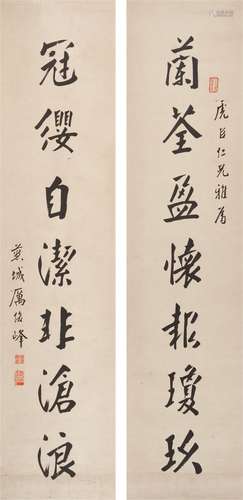 蘭荃盈懷報瓊玖
虎臣仁兄雅屬
冠纓自潔非滄浪
蕪城厲佑峰